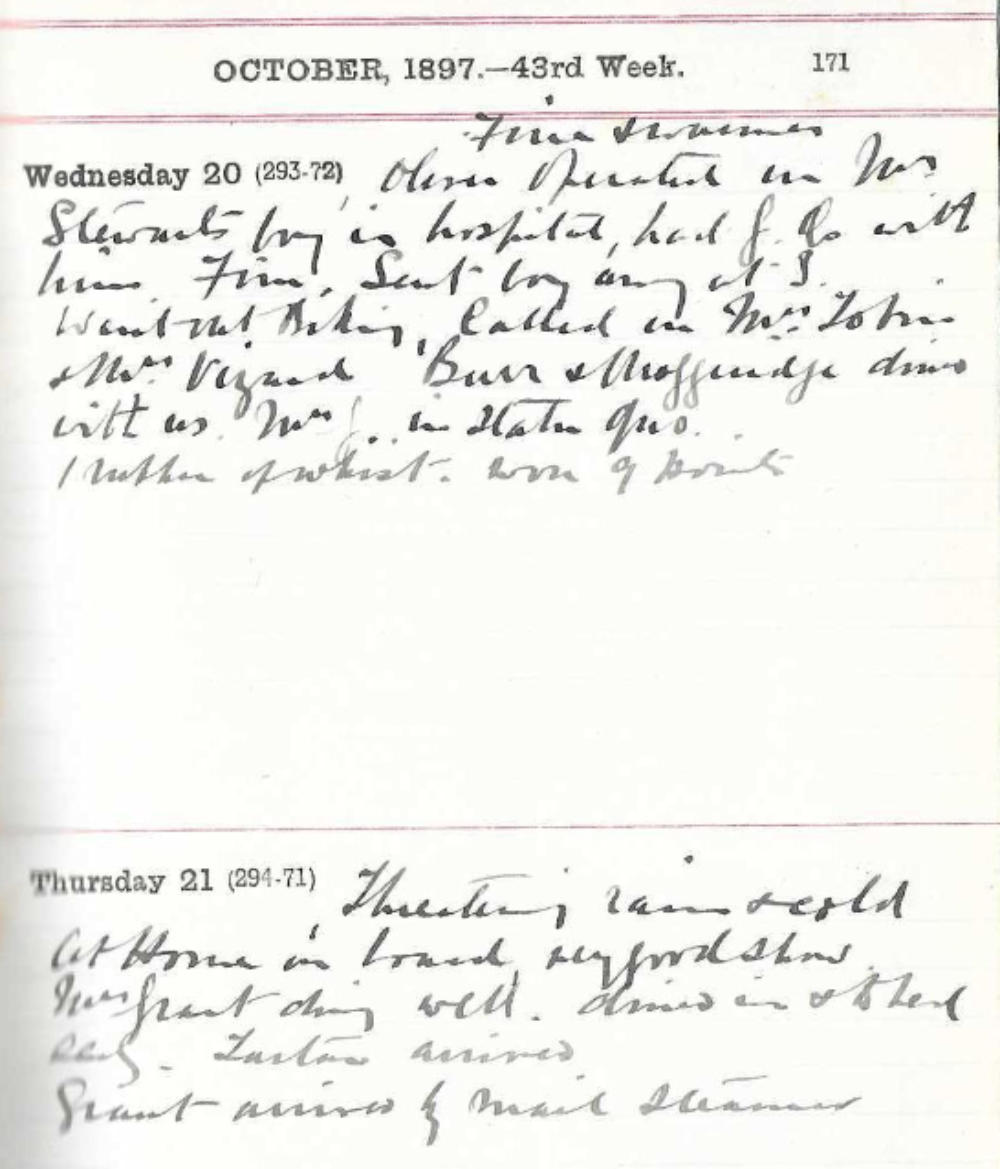 OCTOBER, 1897.—43rd Week. 171
Fine & warmer
Wednesday 20 (293-72) Oliver Operated on Mrs
Stewarts boy in hospital, had J. with
him. Fine. Sent boy away at 3.
Went out Biking, Called on Mrs. Tobin
& Mrs. Vizard Burr & Moggridge dine
with us. Mrs G.. in Statu Quo.
1 rubber of whist. won 9 points
Thursday 21 (294-71) Threatening rain & cold
At Home on board, very good show.
Mrs Grant doing well. dined in & to bed
early. arrived
Grant arrived by Mail Steamer